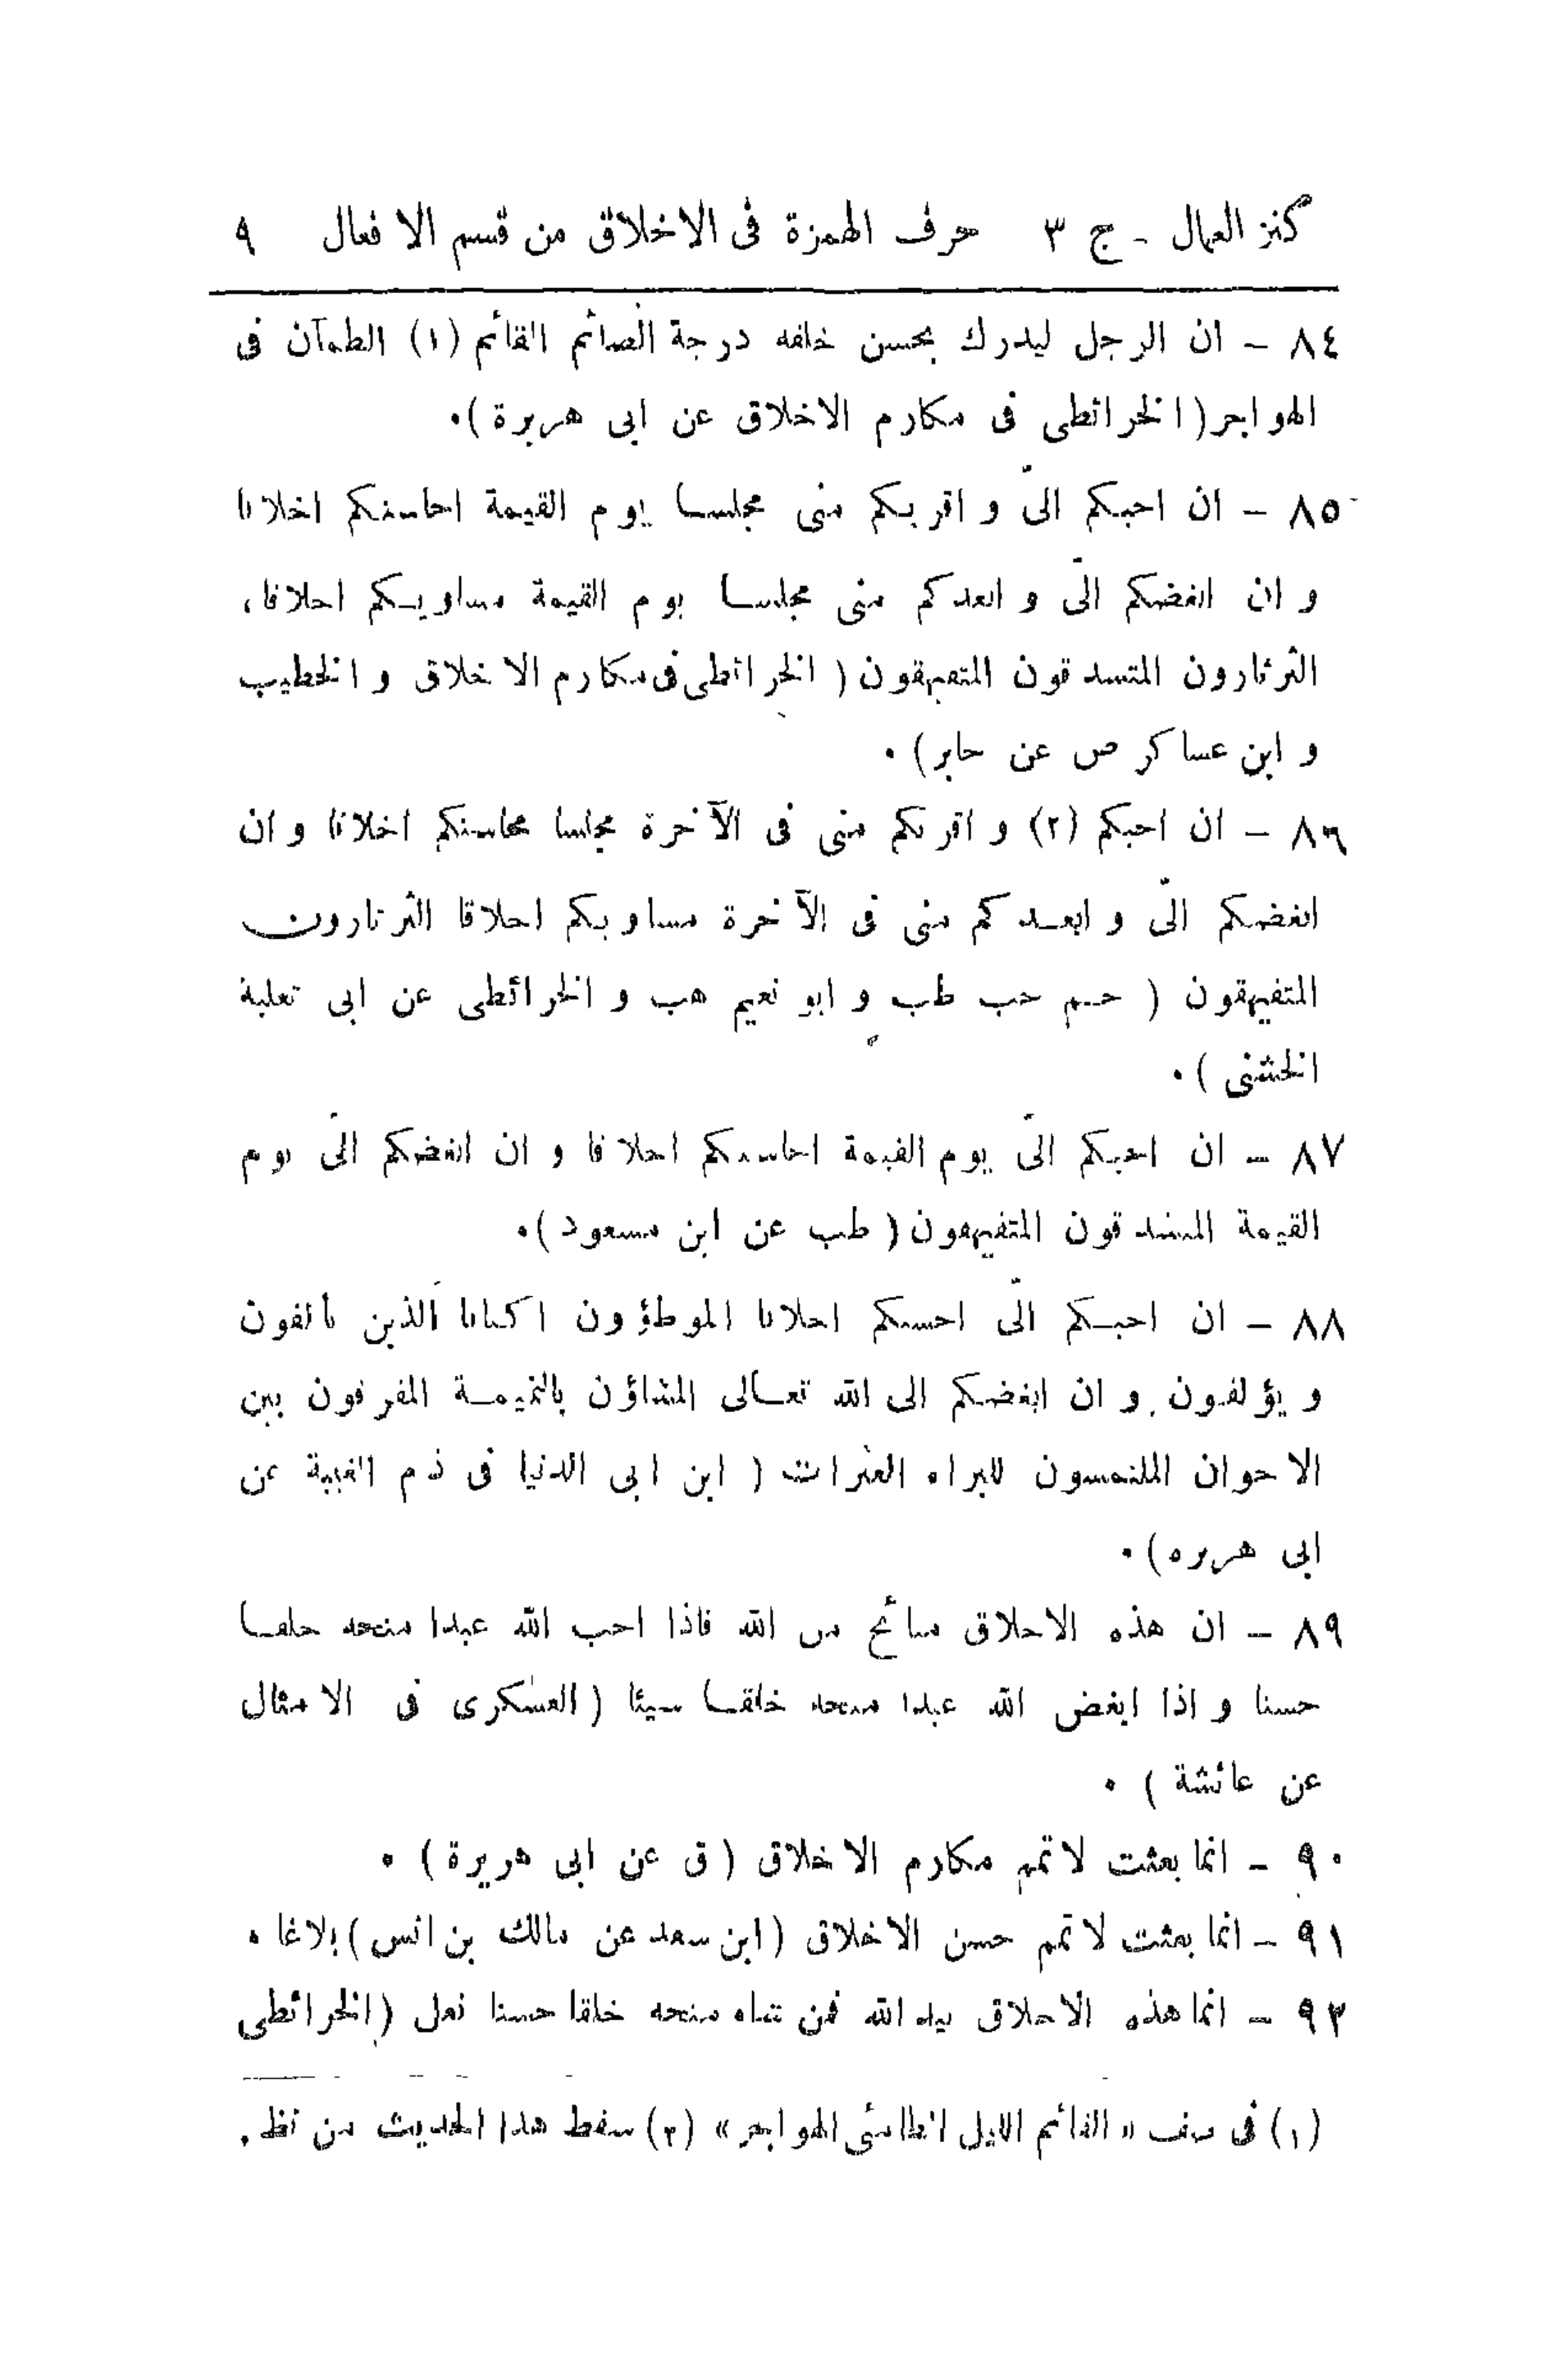 كنز العمال - ج ٣ حرف الهمزة فى الاخلاق من قسم الافعال ٩
٨٤ - ان الرجل ليدرك بحسن خلقه درجة الصائم القائم (١) الظمآن فى
الهواجر (الخرائطى فى مكارم الاخلاق عن ابى هريرة).
٨٥ - ان احبكم الىّ و اقربكم منى مجلسا يوم القيمة احاسنكم اخلاقا
و ان ابغضكم الىّ و ابعدكم منى مجلسا يوم القيمة مساويكم اخلاقا،
الثرثارون المتشدقون المتفيهقون ( الخرائطى فى مكارم الاخلاق و الخطيب
و ابن عساكر ص عن جابر) .
٨٦ - ان احبكم (٢) و اقربكم منى فى الآخرة مجلسا محاسنكم اخلاقا و ان
ابغضكم الىّ و ابعدكم منى فى الآخرة مساويكم اخلاقا الثرثارون
المتفيهقون ( حم حب طب و ابو نعيم هب و الخرائطى عن ابى ثعلبة
الخشنى ) .
٨٧ - ان احبكم الىّ يوم القيمة احاسنكم اخلاقا و ان ابغضكم الىّ يوم
القيمة المتشدقون المتفيهقون ( طب عن ابن مسعود ).
٨٨ - ان احبكم الىّ احسنكم اخلاقا الموطؤون اكنافا الذين يألفون
و يؤلفون و ان ابغضكم الى الله تعالى المشاؤن بالنميمة المفرقون بين
الاخوان الملتمسون للبراء العثرات ( ابن ابى الدنيا فى ذم الغيبة عن
ابى هريرة) .
٨٩ - ان هذه الاخلاق منائح من الله فاذا احب الله عبدا منحه خلقا
حسنا و اذا ابغض الله عبدا منحه خلقا سيئا ( العسكرى فى الامثال
عن عائشة ) .
٩٠ - انما بعثت لاتمم مكارم الاخلاق ( ق عن ابى هريرة ) .
٩١ - انما بعثت لاتمم حسن الاخلاق (ابن سعد عن مالك بن انس) بلاغا .
٩٣ - انما هذه الاخلاق بيد الله فمن شاء منحه خلقا حسنا فعل (الخرائطى
(١) فى « القائم الليل الظامئى الهواجر» (٢) سقط هذا الحديث من نظ .